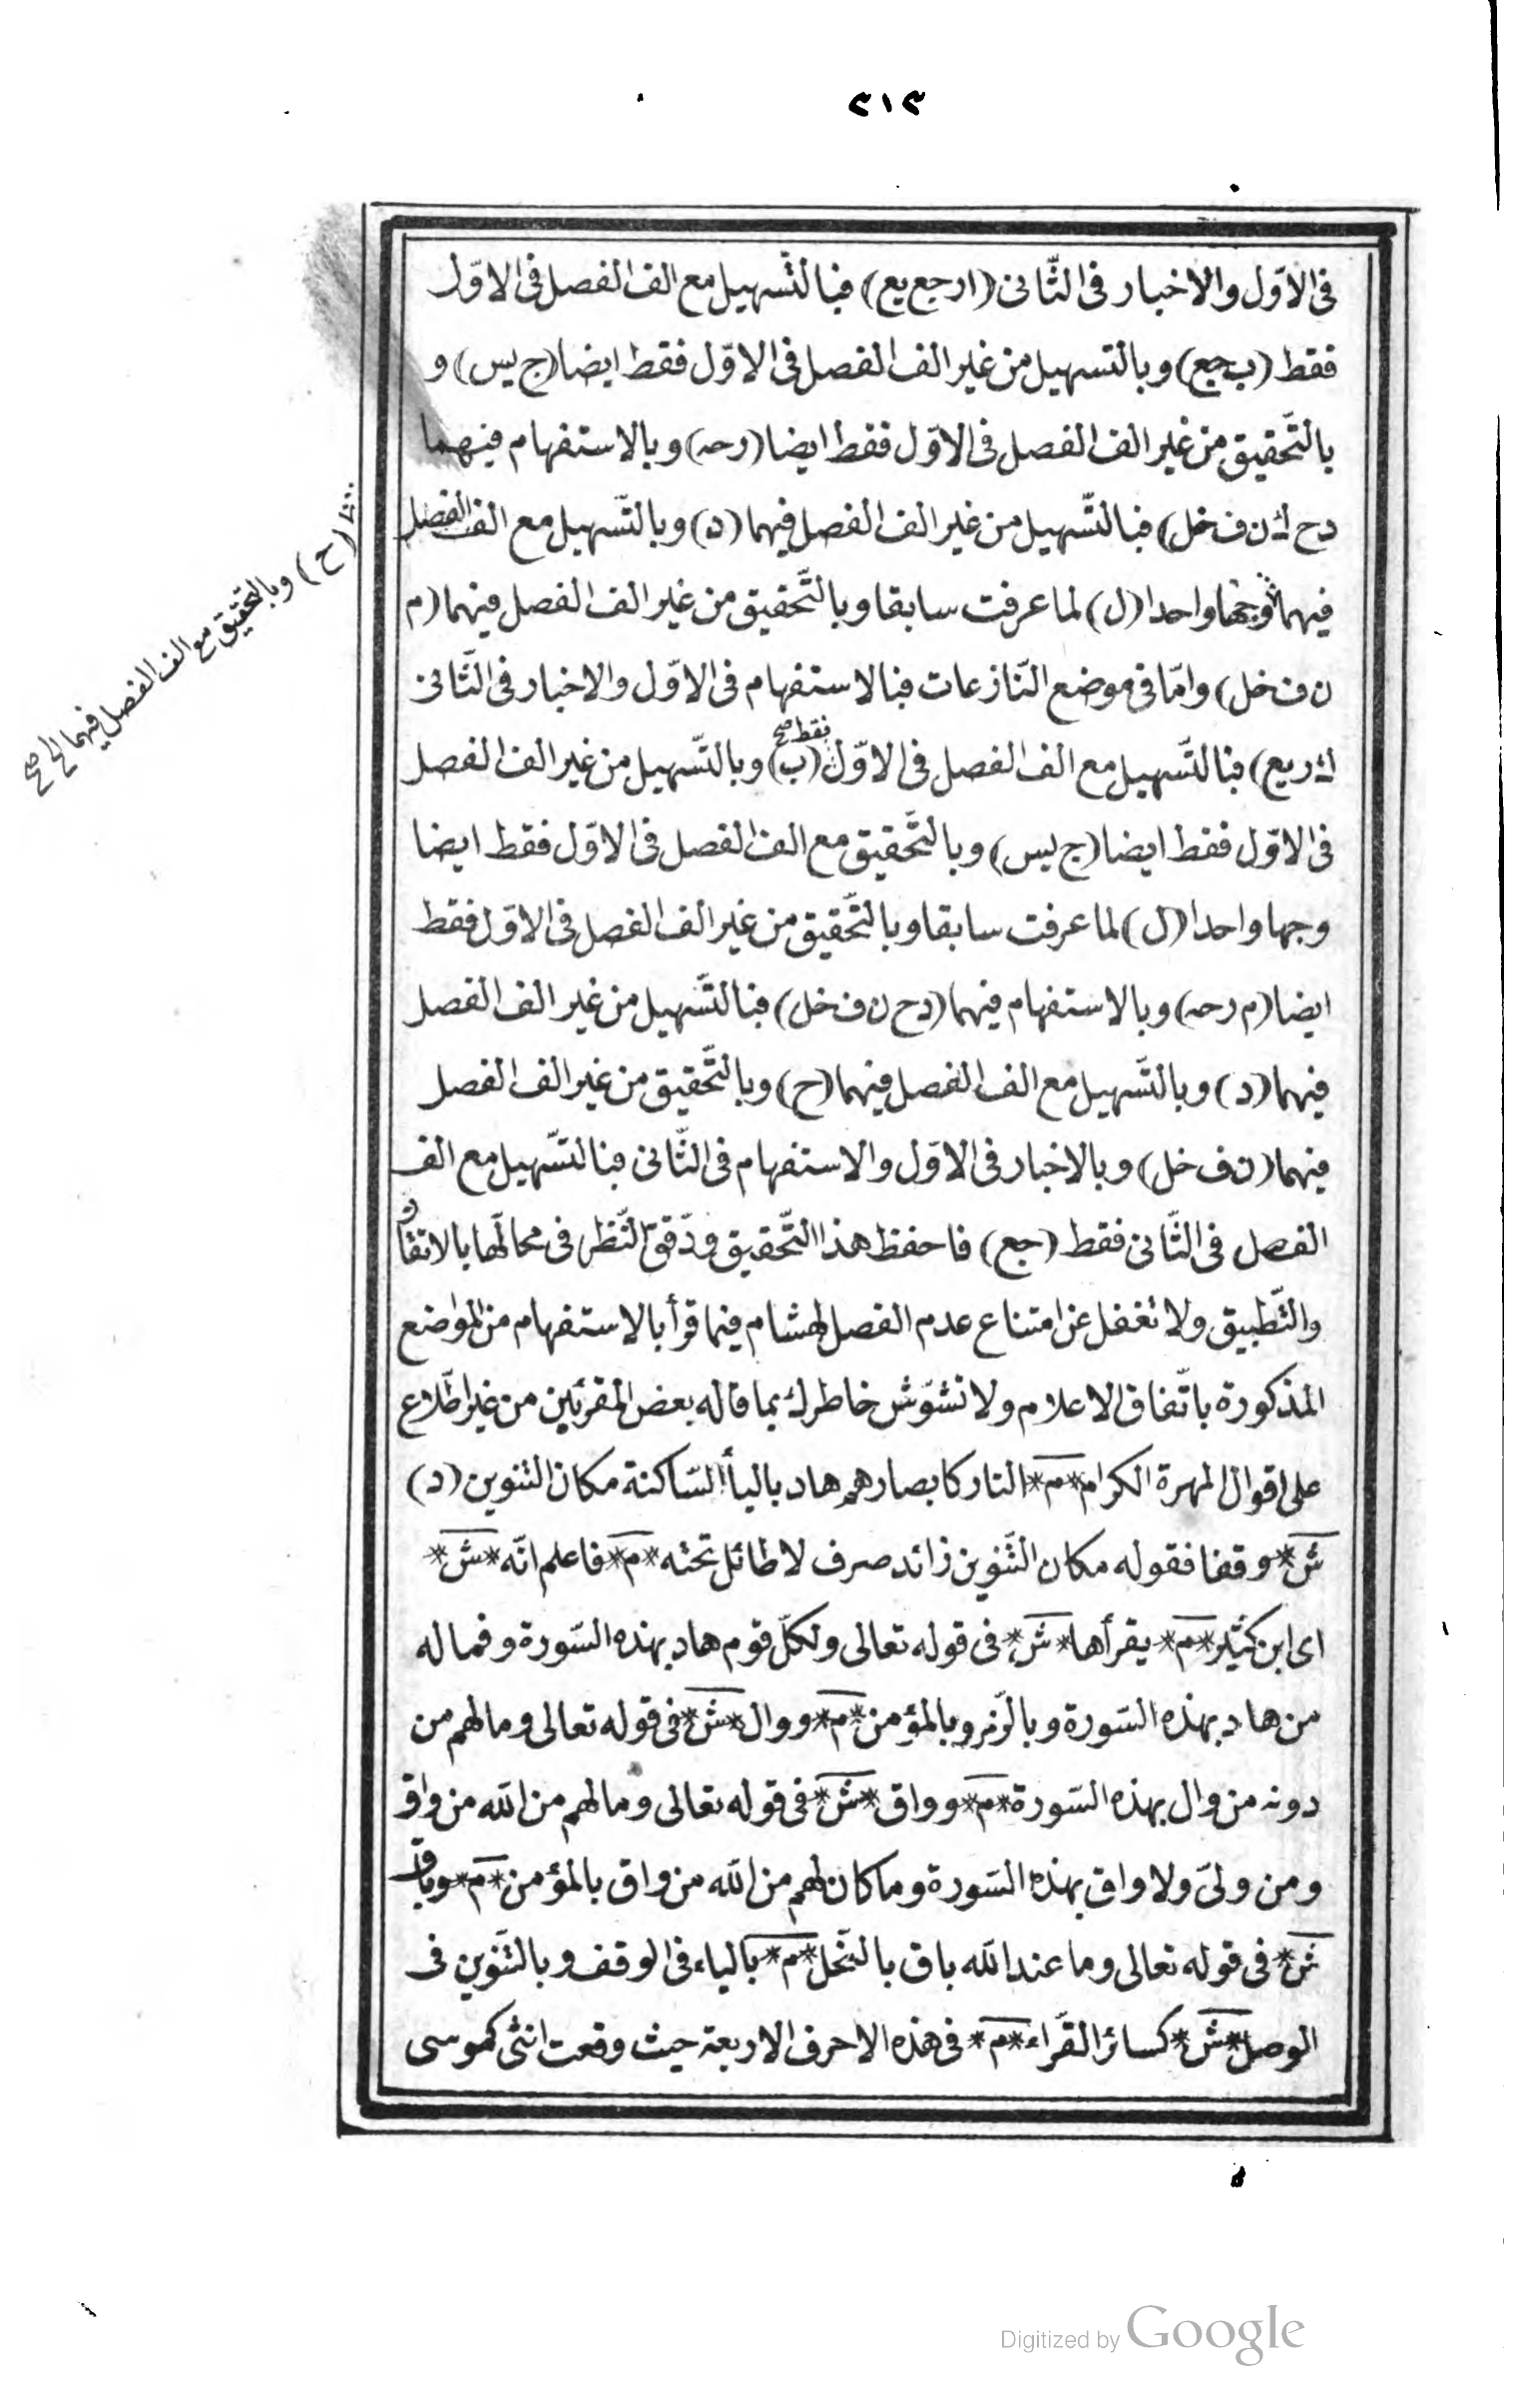 ٢١٣
فى الاوّل والاخبار فى الثّانى (ارجع يع) فبالتّسهيل مع الف الفصل فى الاوّل
فقط (ب جع) وبالتسهيل من غير الف الفصل فى الاوّل فقط ايضا (ج يس) و
بالتّحقيق من غير الف الفصل فى الاوّل فقط ايضا (رحه) وبالاستفهام فيهما
دح ك ن ف خل) فبالتّسهيل من غير الف الفصل فيهما (د) وبالتّسهيل مع الف الفصل
فيهما (ح) وبالتحقيق مع الف الفصل فيهما الخ صح
فيهما وجها واحدا (ل) لما عرفت سابقا وبالتّحقيق من غير الف الفصل فيهما (م
ن ف خل) وامّا فى موضع النّازعات فبالاستفهام فى الاوّل والاخبار فى الثّانى
ك ر يع) فبالتّسهيل مع الف الفصل فى الاوّل فقط صح (ب) وبالتّسهيل من غير الف الفصل
فى الاوّل فقط ايضا (ج يس) وبالتّحقيق مع الف الفصل فى الاوّل فقط ايضا
وجها واحدا (ل) لما عرفت سابقا وبالتّحقيق من غير الف الفصل فى الاوّل فقط
ايضا (م رحه) وبالاستفهام فيهما (دح ن ف خل) فبالتّسهيل من غير الف الفصل
فيهما (د) وبالتّسهيل مع الف الفصل فيهما (ح) وبالتّحقيق من غير الف الفصل
فيهما (ن ف خل) وبالاخبار فى الاوّل والاستفهام فى الثّانى فبالتّسهيل مع الف
الفصل فى الثّانى فقط (جع) فاحفظ هذا التّحقيق ودقّق النّظر فى محالّها بالاتقان
والتّطبيق ولا تغفل عن امتناع عدم الفصل لهشام فيما قرأ بالاستفهام من المواضع
المذكورة باتّفاق الاعلام ولا تشوّش خاطرك بما قاله بعض المقرئين من غير اطّلاع
على اقوال المهرة الكرام *م* النار كابصارهم هاد بالياء السّاكنة مكان التنوين (د)
ش* وقفا فقوله مكان التّنوين زائد صرف لا طائل تحته *م* فاعلم انّه *ش*
اى ابن كثير *م* يقرأها *ش* فى قوله تعالى ولكلّ قوم هاد بهذه السّورة وفما له
من هاد بهذه السّورة وبالزّمر وبالمؤمن *م* ووال *ش* فى قوله تعالى وما لهم من
دونه من وال بهذه السّورة *م* وواق *ش* فى قوله تعالى وما لهم من اللّه من واق
ومن ولىّ ولا واق بهذه السّورة وما كان لهم من اللّه من واق بالمؤمن *م* وباق
ش* فى قوله تعالى وما عند اللّه باق بالنّحل *م* بالياء فى الوقف وبالتّنوين فى
الوصل *ش* كسائر القرّاء *م* فى هذه الاحرف الاربعة حيث وقعت انثى كموسى
Digitized by Google